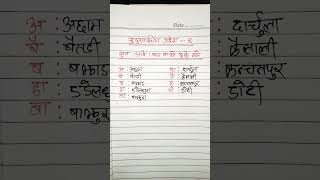 Date
सुदुरपश्चिम प्रदेश - ७
अ : अछाम दा : दार्चुला
बै : बैतडी कै : कैलाली
ब : बझाङ क : कन्चनपुर
डा : डडेलधुरा डो : डोटी
बा : बाजुरा